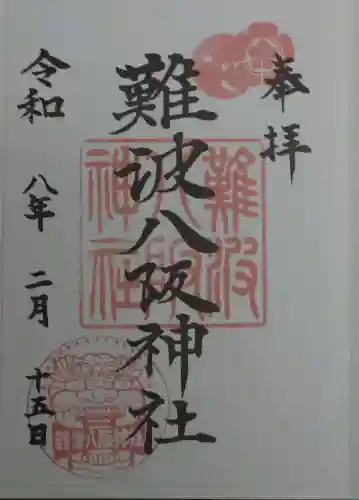 奉拝
難波八阪神社
令和 八年 二月 十五日
難波
八阪
神社